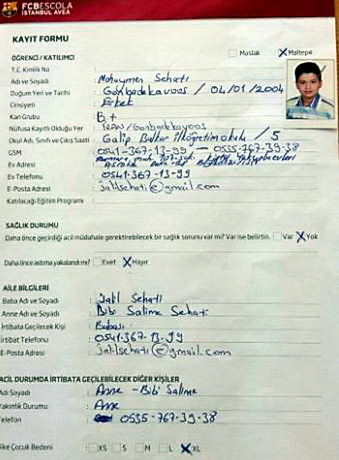 FCBESCOLA
ISTANBUL AVEA
KAYIT FORMU
Maslak X Maltepe
ÖĞRENCİ / KATILIMCI
T.C. Kimlik No
Adı ve Soyadı : Mohaymen Sehati
Doğum Yeri ve Tarihi : Gonbadekavoos / 04/01/2004
Cinsiyeti : Erkek
Kan Grubu : B+
Nüfusa Kayıtlı Olduğu Yer : IRAN/Gonbadekavoos
Okul Adı, Sınıfı ve Çıkış Saati : Galip Bultur İlköğretimokulu / 5
GSM : 0541-367-13-99 - 0535-767-39-38
Ev Adresi
Ev Telefonu : 0541-367-13-99
E-Posta Adresi : jalilsehati@gmail.com
Katılacağı Eğitim Programı :
SAĞLIK DURUMU
Daha önce geçirdiği acil müdahale gerektirebilecek bir sağlık sorunu var mı? Var ise belirtin. Var X Yok
Daha önce astıma yakalandı mı? Evet X Hayır
AİLE BİLGİLERİ
Baba Adı ve Soyadı : Jalil Sehati
Anne Adı ve Soyadı : Bibi Salime Sehati
İrtibata Geçilecek Kişi : Babası
İrtibat Telefonu : 0541.367.13.99
E-Posta Adresi : jalilsehati@gmail.com
ACİL DURUMDA İRTİBATA GEÇİLEBİLECEK DİĞER KİŞİLER
Adı Soyadı : Anne - Bibi Salime
Yakınlık Durumu : Anne
Telefon : 0535-767-39-38
Çocuk Bedeni : XS S M L X XL